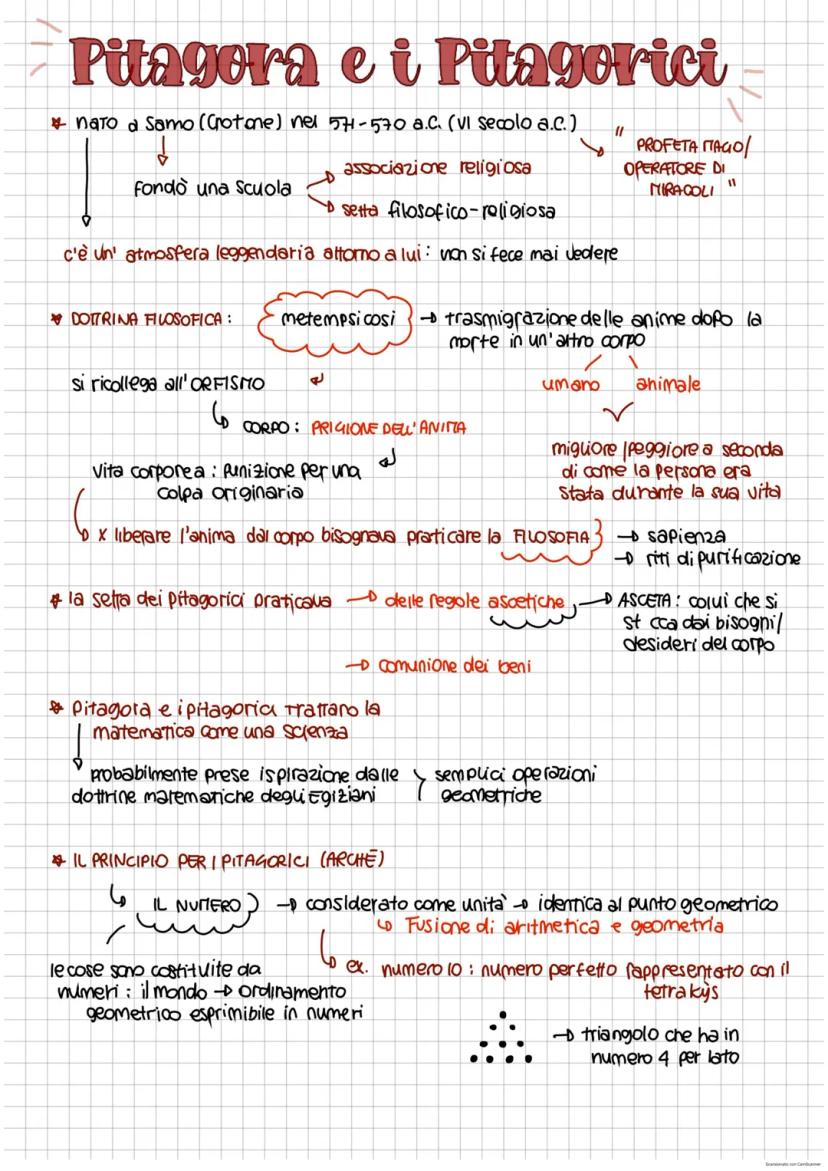 Pitagora e i Pitagorici
nato a Samo (Crotone) nel 571-570 a.C. (VI secolo a.C.)
" PROFETA MAGO/
OPERATORE DI
MIRACOLI "
fondò una scuola
associazione religiosa
setta filosofico-religiosa
c'è un' atmosfera leggendaria attorno a lui: non si fece mai vedere
DOTTRINA FILOSOFICA:
metempsicosi → trasmigrazione delle anime dopo la
morte in un'altro corpo
umano animale
si ricollega all'ORFISMO
CORPO: PRIGIONE DELL'ANIMA
migliore/peggiore a seconda
di come la persona era
stata durante la sua vita
vita corporea: punizione per una
colpa originaria
x liberare l'anima dal corpo bisognava praticare la FILOSOFIA
→ sapienza
→ riti di purificazione
la setta dei Pitagorici praticava → delle regole ascetiche → ASCETA: colui che si
st cca dai bisogni/
desideri del corpo
→ comunione dei beni
Pitagora e i pitagorici trattano la
matematica come una scienza
probabilmente prese ispirazione dalle
dottrine matematiche degli Egiziani
semplici operazioni
geometriche
IL PRINCIPIO PER I PITAGORICI (ARCHÈ)
IL NUMERO → considerato come unità → identica al punto geometrico
Fusione di aritmetica e geometria
le cose sono costituite da
numeri: il mondo → ordinamento
geometrico esprimibile in numeri
ex. numero 10: numero perfetto rappresentato con il
tetrakys
→ triangolo che ha in
numero 4 per lato
Scansionato con CamScanner